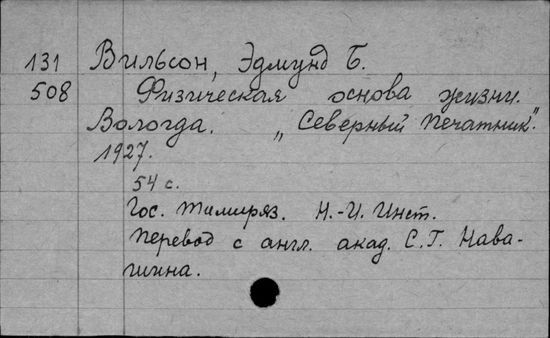 131 Вильсон, Эдмунд Б.
508 Физическая основа жизни.
Вологда. „Северный Печатник".
1927.
54 с.
Гос. Тимиряз. Н.-И. Инст.
Перевод с англ. акад. С.Г. Нава-
шина.